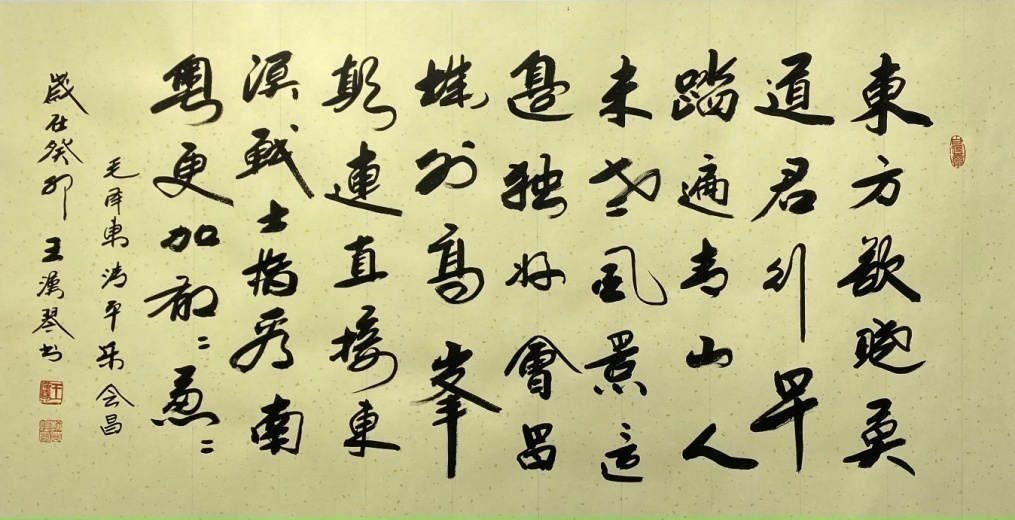 東方欲曉莫
道君行早
踏遍青山人
未老風景這
邊独好會昌
城外高峯
顛連直接東
溟戰士指看南
粤更加郁々葱々
毛泽東清平樂会昌
歲在癸卯王漢琴书